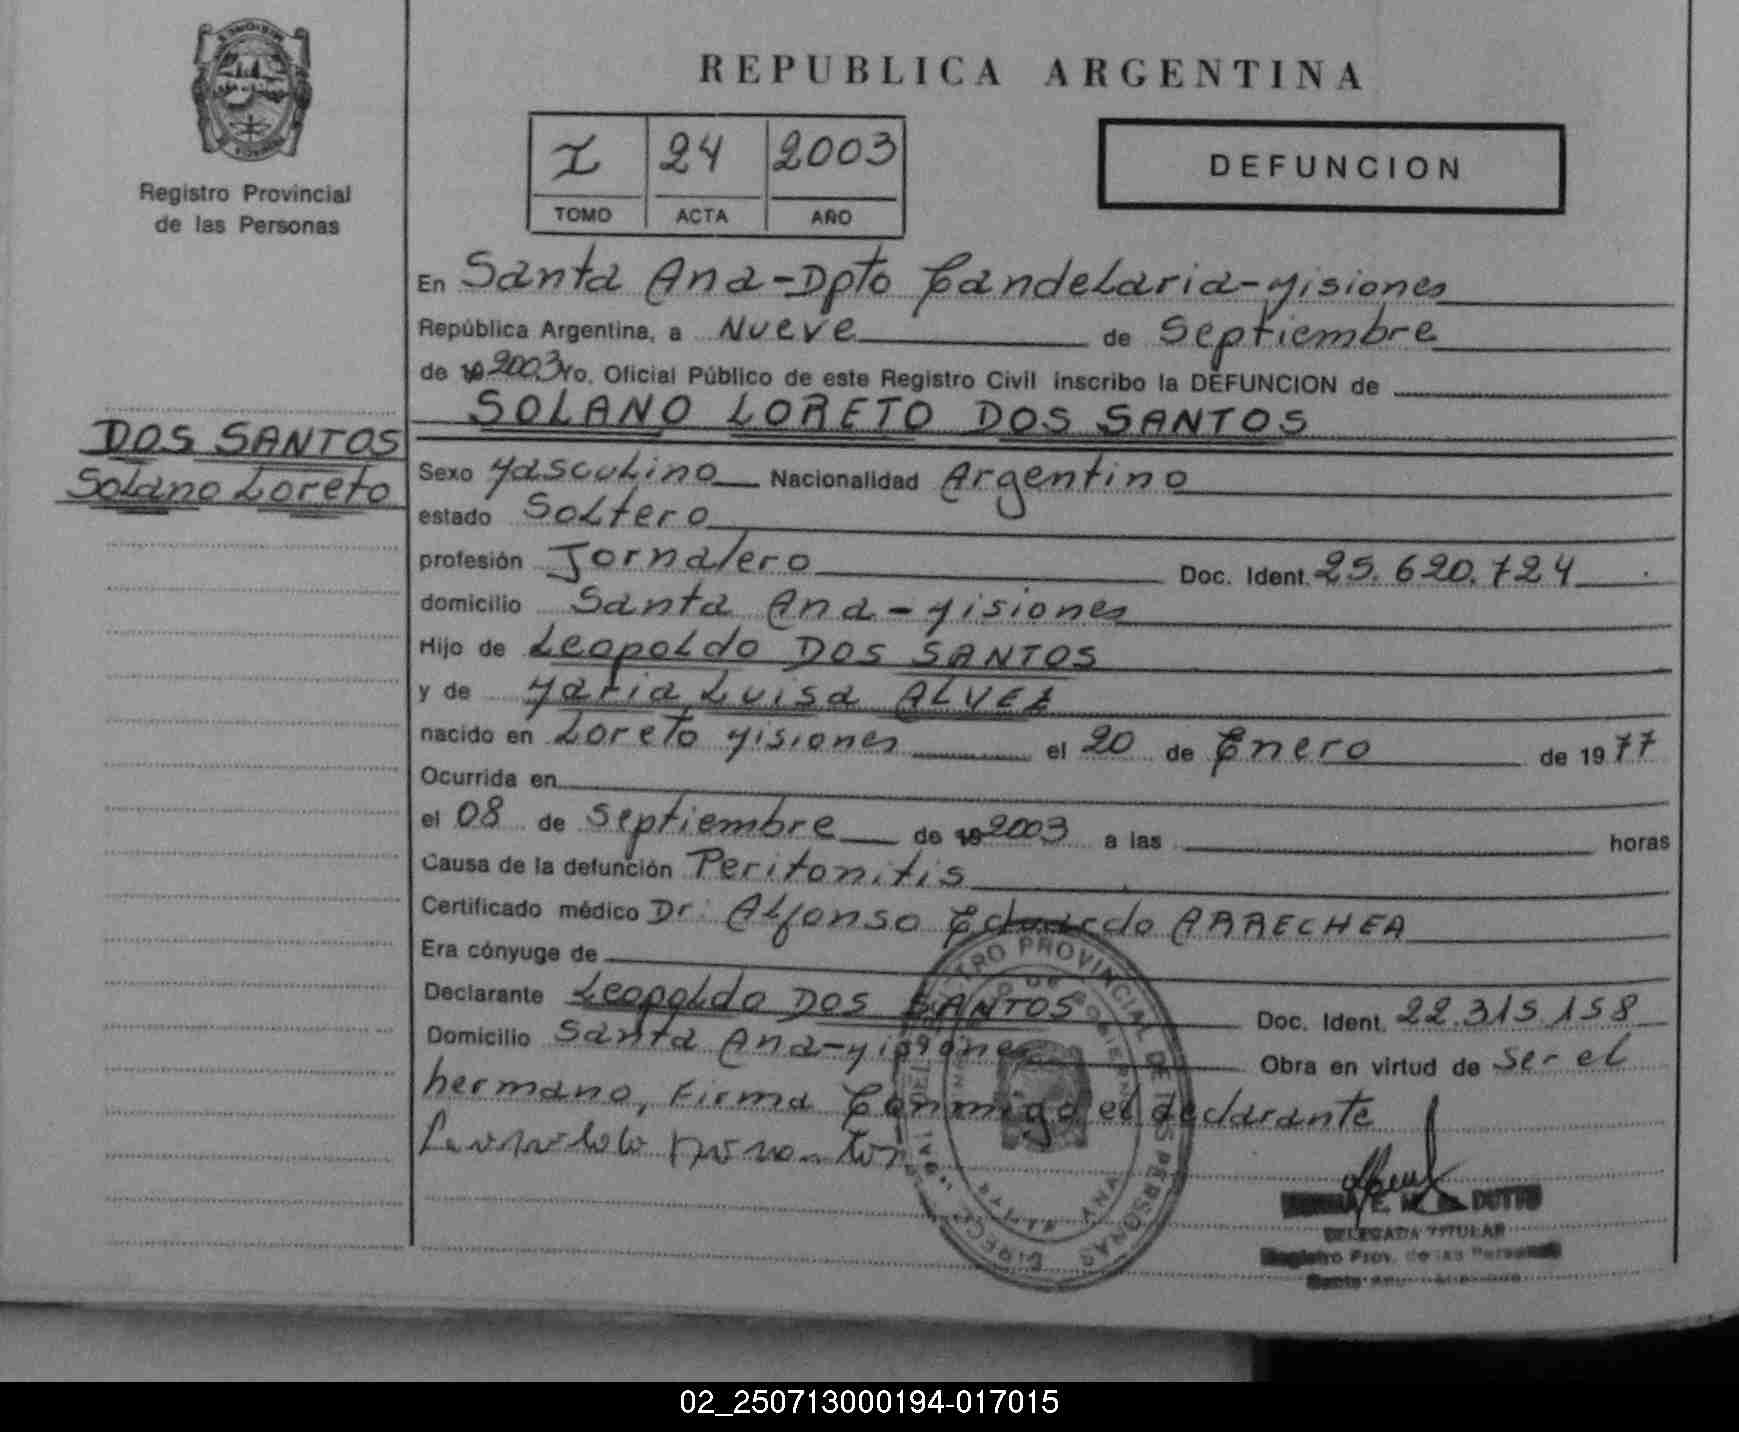 REPUBLICA ARGENTINA
I 24 2003
TOMO ACTA AÑO
DEFUNCION
Registro Provincial
de las Personas
En Santa Ana-Dpto Candelaria-Misiones
República Argentina, a Nueve de Septiembre
de 19 2003 Yo, Oficial Público de este Registro Civil inscribo la DEFUNCION de
SOLANO LORETO DOS SANTOS
DOS SANTOS
Solano Loreto
Sexo Masculino Nacionalidad Argentino
estado Soltero
profesión Jornalero Doc. Ident. 25.620.724
domicilio Santa Ana-Misiones
Hijo de Leopoldo DOS SANTOS
y de Maria Luisa ALVEZ
nacido en Loreto Misiones el 20 de Enero de 1977
Ocurrida en
el 08 de Septiembre de 19 2003 a las horas
Causa de la defunción Peritonitis
Certificado médico Dr. Alfonso Eduardo ARRECHEA
Era cónyuge de
Declarante Leopoldo DOS SANTOS Doc. Ident. 22.315.158
Domicilio Santa Ana-Misiones Obra en virtud de Ser el
hermano, Firma Conmigo el declarante
DELEGADA TITULAR
Registro Prov. de las Personas
02_250713000194-017015